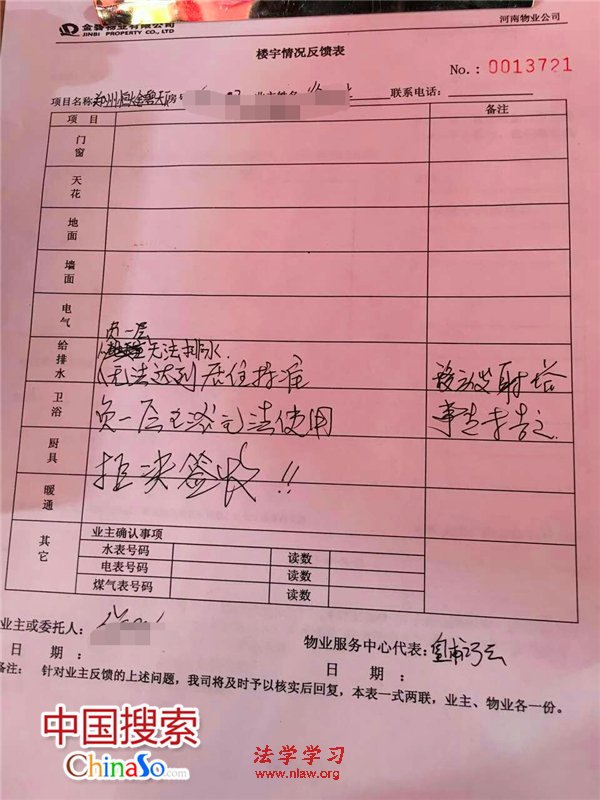 金碧物业有限公司
JINBI PROPERTY CO., LTD
河南物业公司
楼宇情况反馈表
No.: 0013721
项目名称 房号 业主姓名 联系电话:
项 目 备注
门窗
天花
地面
墙面
电气
负一层
给排水 无法排水.
无法达到居住标准 移动发射塔
卫浴 负一层卫浴无法使用 事先未告之
厨具 拒决签收!!
暖通
其它 业主确认事项
水表号码 读数
电表号码 读数
煤气表号码 读数
业主或委托人:
物业服务中心代表:
日 期:
日 期:
备注: 针对业主反馈的上述问题,我司将及时予以核实后回复,本表一式两联,业主、物业各一份。
中国搜索
ChinaSo.com
法学学习
www.nlaw.org